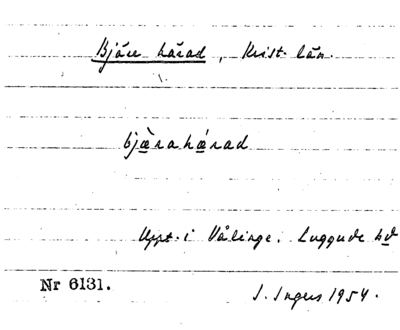 Bjäre härad, Krist. län.
bjæ̀rahǽrad
Uppt. i Välinge. Luggude hd
Nr 6131.
I. Ingers 1954.